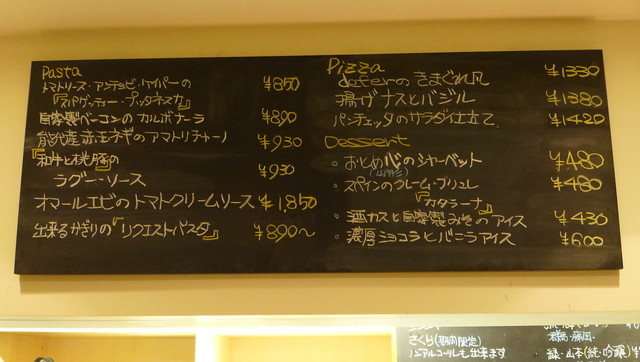 Pasta
トマトソース・アンチョビ・ケイパーの
『スパゲッティー・プッタネスカ』 ¥850
自家製ベーコンのカルボナーラ ¥890
能登産赤玉ネギのアマトリチャーノ ¥930
『和牛と桃豚』の
ラグー・ソース ¥930
オマールエビのトマトクリームソース ¥1,850
出来るかぎりの『リクエストパスタ』 ¥890〜
Pizza
のきまぐれ風 ¥1330
揚げナスとバジル ¥1380
パンチェッタのサラダ仕立て ¥1420
Dessert
・おとめ心のシャーベット ¥480
・スペインのクレーム・ブリュレ ¥480
『カタラーナ』
・酒カスと自家製みそのアイス ¥430
・濃厚ショコラとバニラアイス ¥600
さくら(期間限定)
ノンアルコールも出来ます